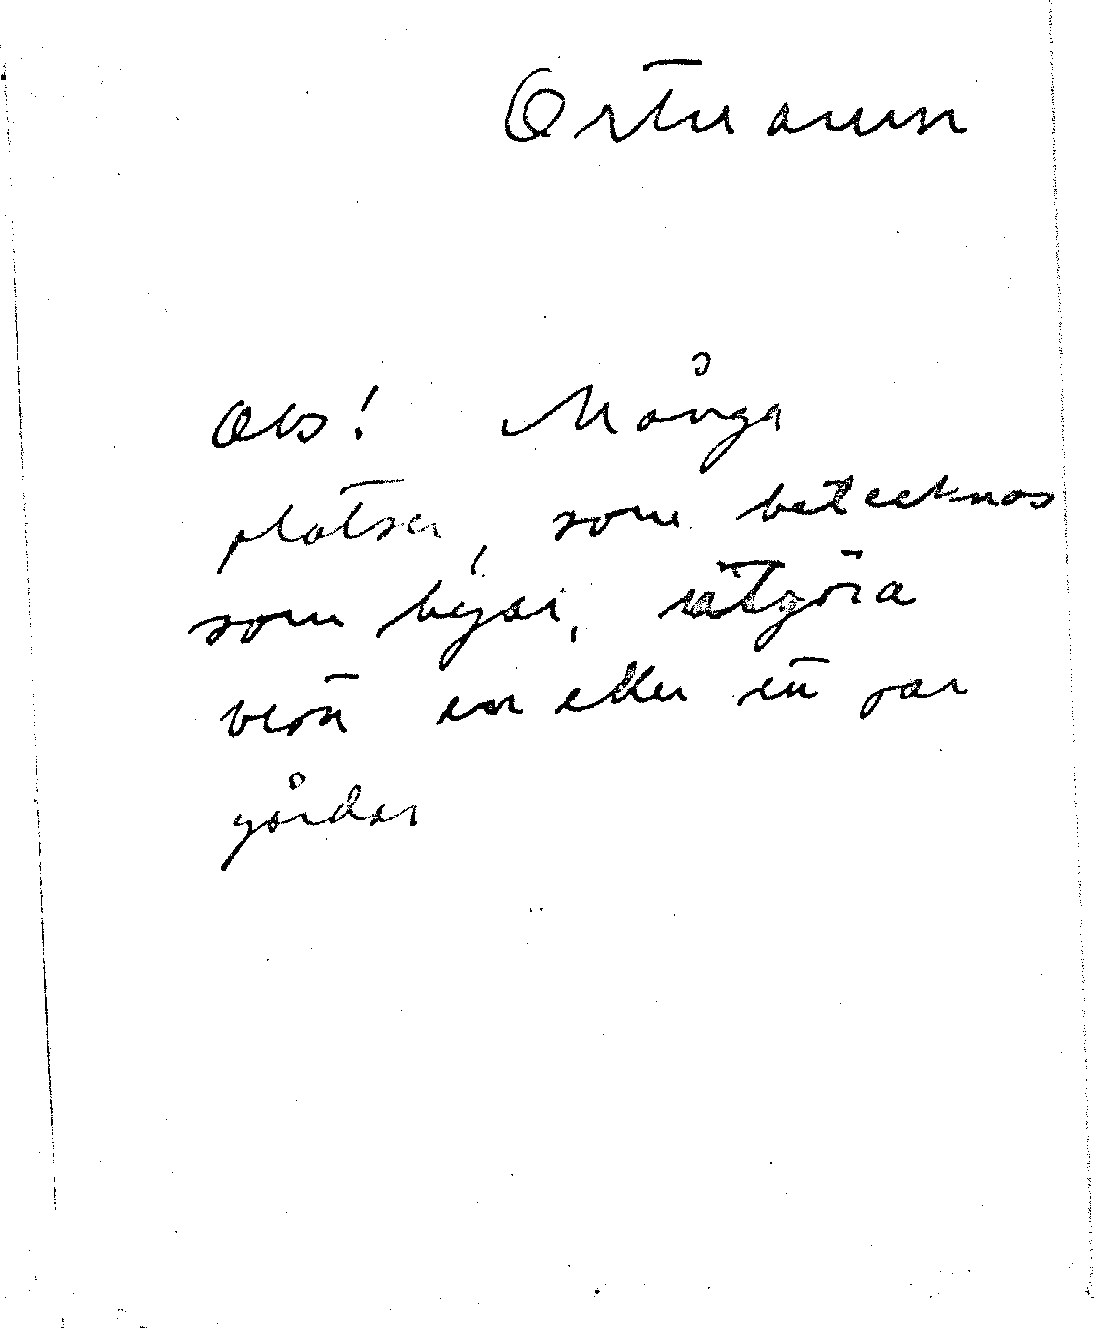 Ortnamn
Obs! Många
platser, som betecknas
som byar, utgöra
en eller ett par
gårdar